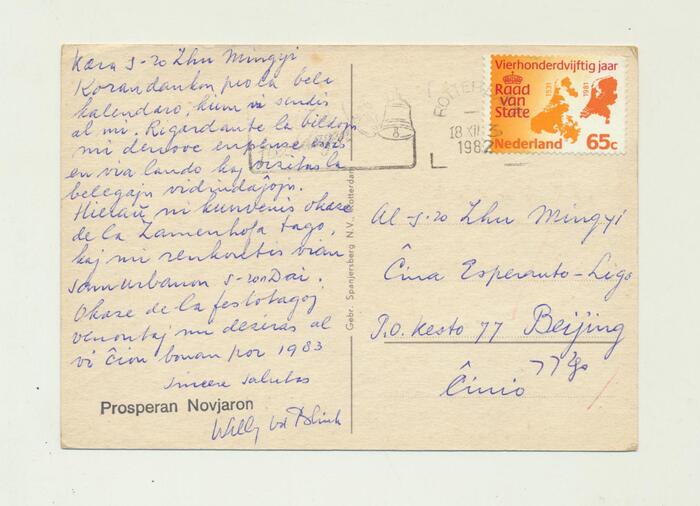 Kara s-ro Zhu Mingyi
Koran dankon pro la bela
kalendaro, kiun vi sendis
al mi. Rigardante la bildojn
mi denove enpense estis
en via lando kaj vizitas la
belegajn vidindaĵojn.
Hieraŭ ni kunvenis okaze
de la Zamenhofa tago,
kaj mi renkontis vian
samurbanon s-ron Dai.
Okaze de la festotagoj
venontaj mi deziras al
vi ĉion bonan por 1983
sincere salutas
Prosperan Novjaron
Willy
Gebr. Spanjersberg N.V., Rotterdam
ROTTER
18 XII
1982
Vierhonderdvijftig jaar
Raad
van
State
1531
1981
Nederland 65c
Al s-ro Zhu Mingyi
Ĉina Esperanto-Ligo
P.O. Kesto 77 Beijing
Ĉinio